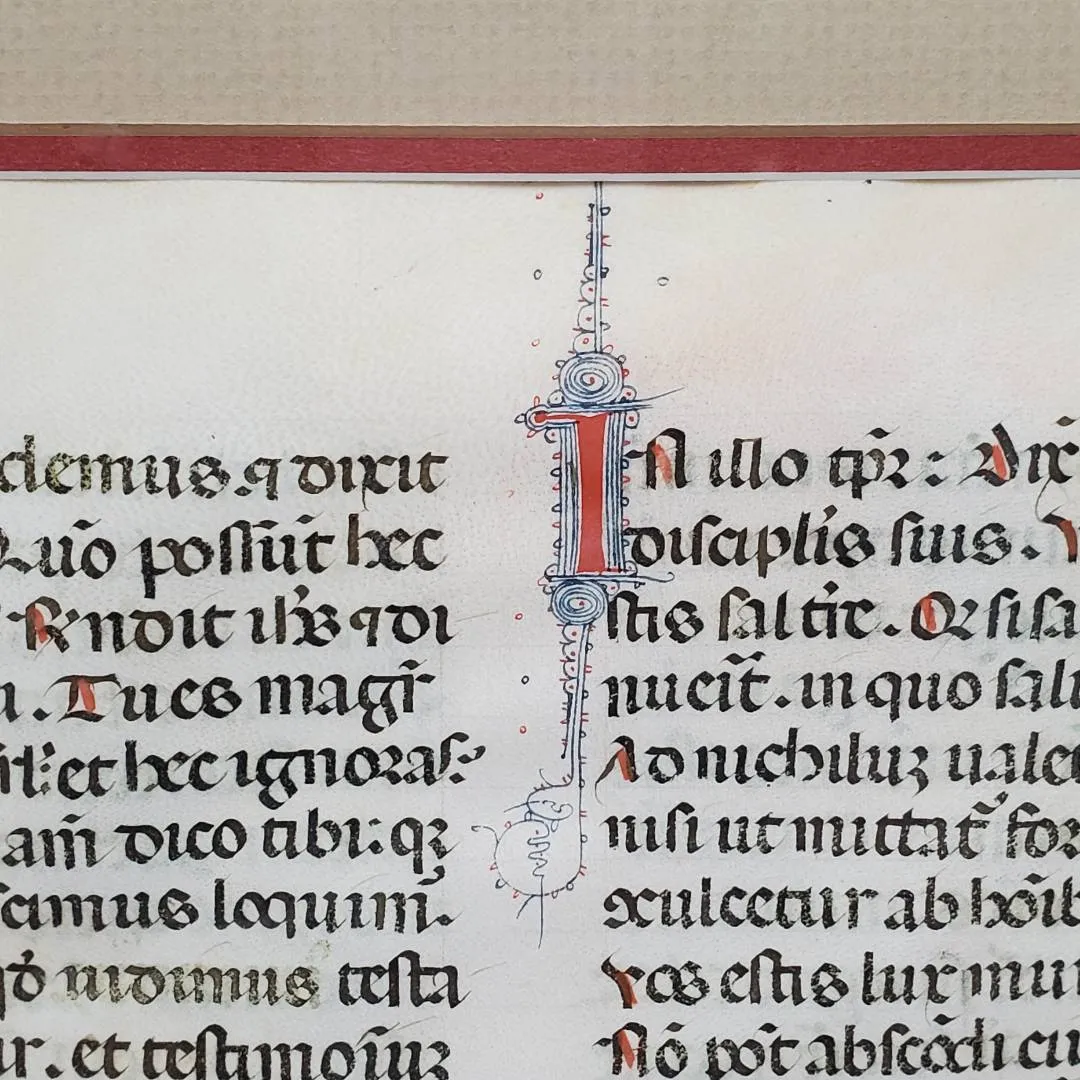 demus. ⁊ dixit
Quō possūt̄ hec
Rn̄dit ih̓s ⁊ di
. Tu es magr̄
et hec ignoras?
am̄ dico tibi: qꝛ
scimus loquim̄.
qđ uidimus testa
ur. et testimoīuꝫ
In illo tp̄r: Dix
discipl̓is suis. V
stis sal tr̄e. Qꝛ si sa
nuerit̄. in quo sali
Ad nichiluꝫ uale
nisi ut mittat̄ for
ꝯculcetur ab hoīb
Vos estis lux mun
Nō pōt abscōdi ci